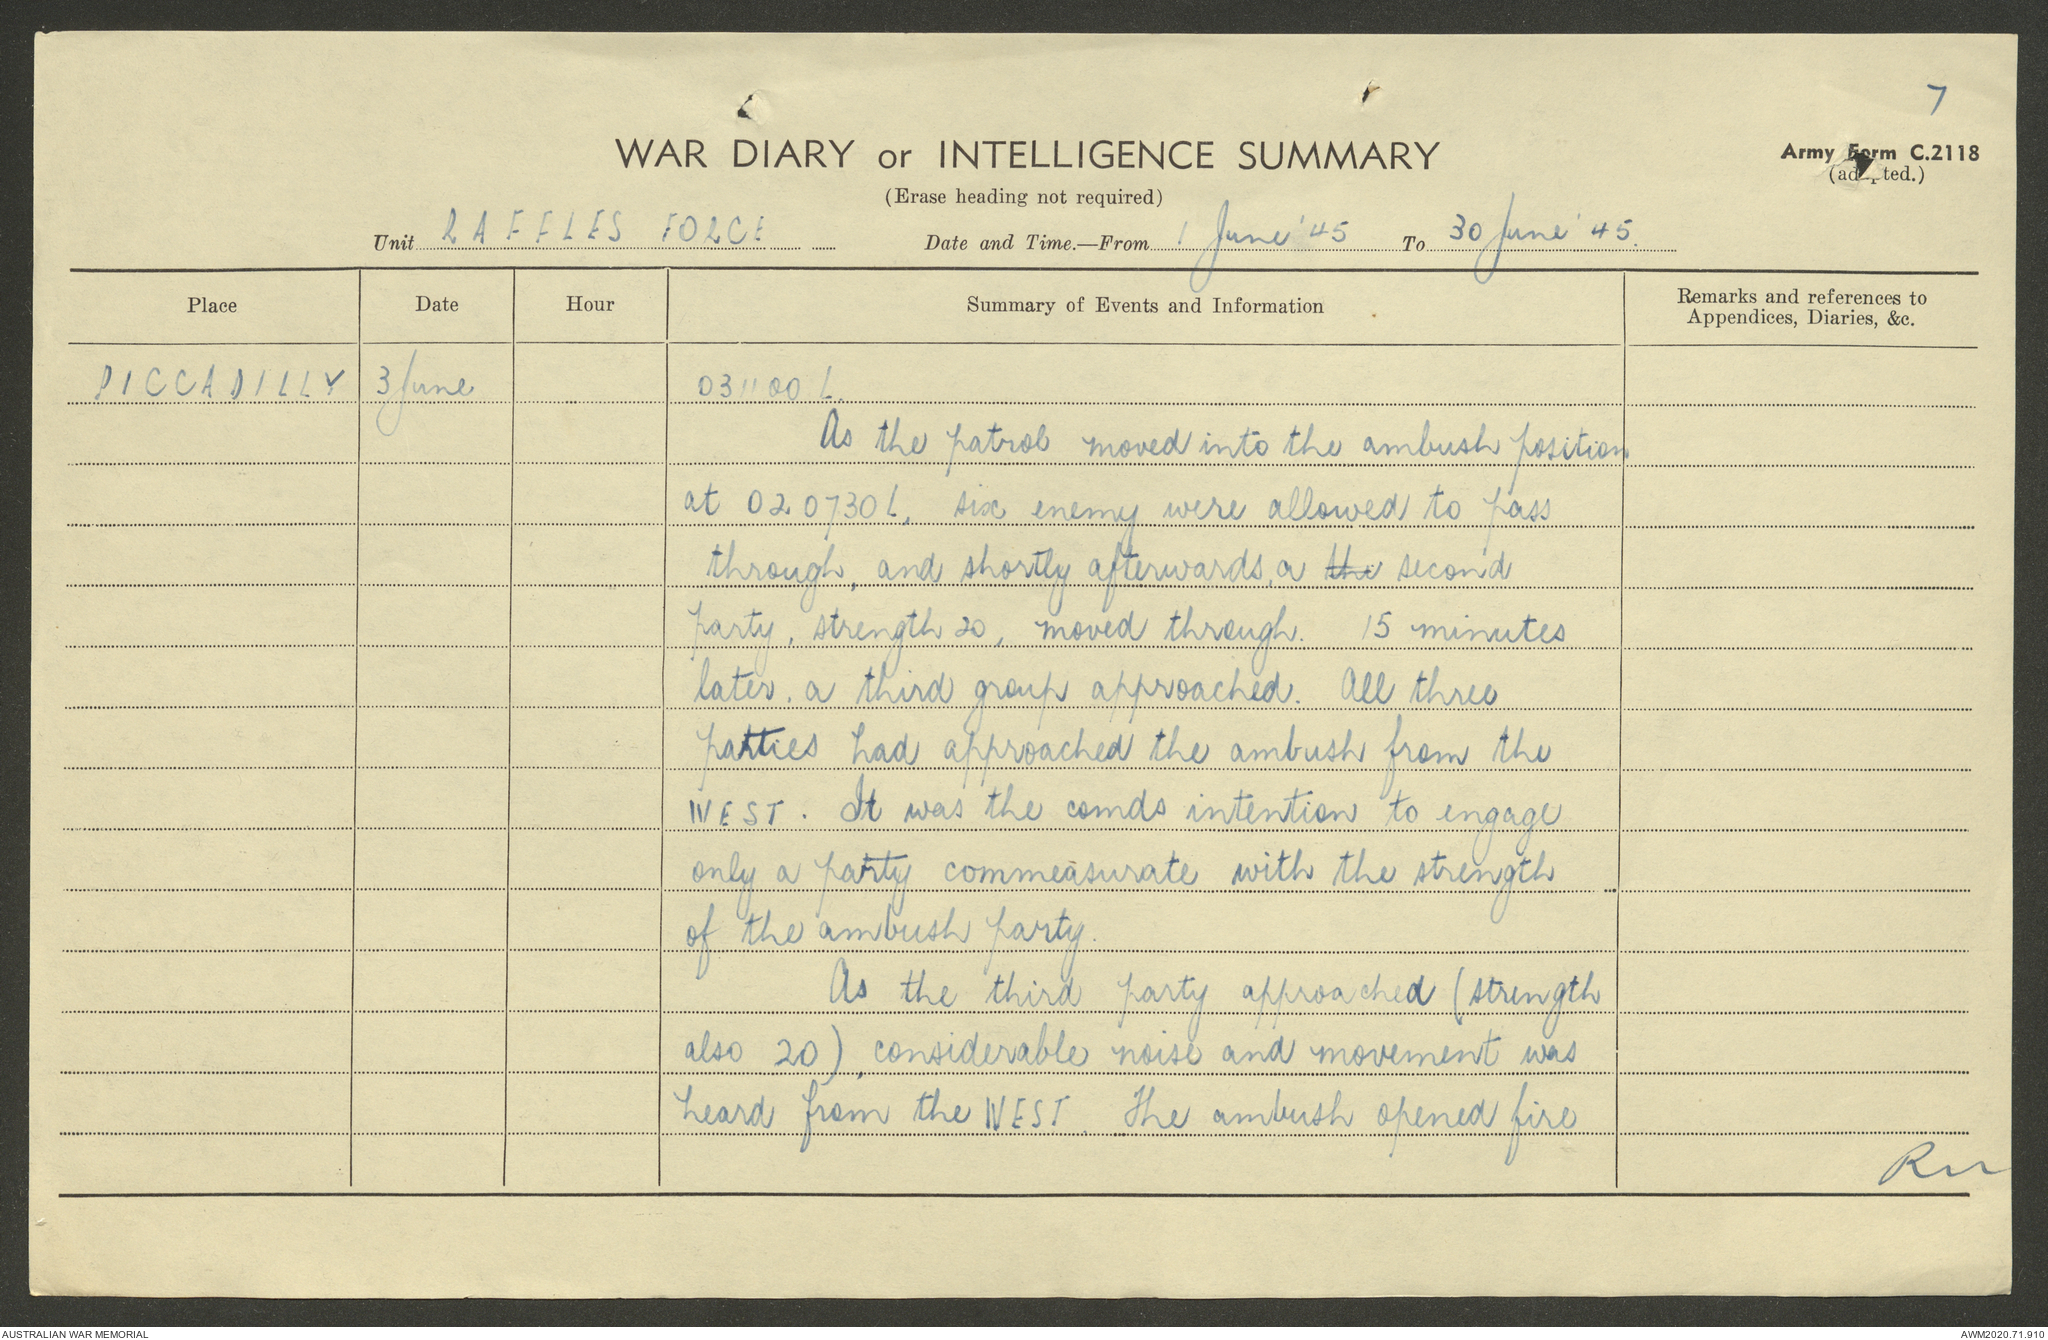 7
WAR DIARY or INTELLIGENCE SUMMARY
Army Form C.2118
(adapted.)
(Erase heading not required)
Unit RAFFLES FORCE Date and Time.—From 1 June '45 To 30 June '45.
Place Date Hour Summary of Events and Information Remarks and references to
Appendices, Diaries, &c.
PICCADILLY 3 June 031100 L.
As the patrol moved into the ambush position
at 020730L, six enemy were allowed to pass
through, and shortly afterwards, a the second
party, strength 20, moved through. 15 minutes
later, a third group approached. All three
parties had approached the ambush from the
WEST. It was the comds intention to engage
only a party commeasurate with the strength
of the ambush party.
As the third party approached (strength
also 20), considerable noise and movement was
heard from the WEST. The ambush opened fire
AUSTRALIAN WAR MEMORIAL
AWM2020.71.910